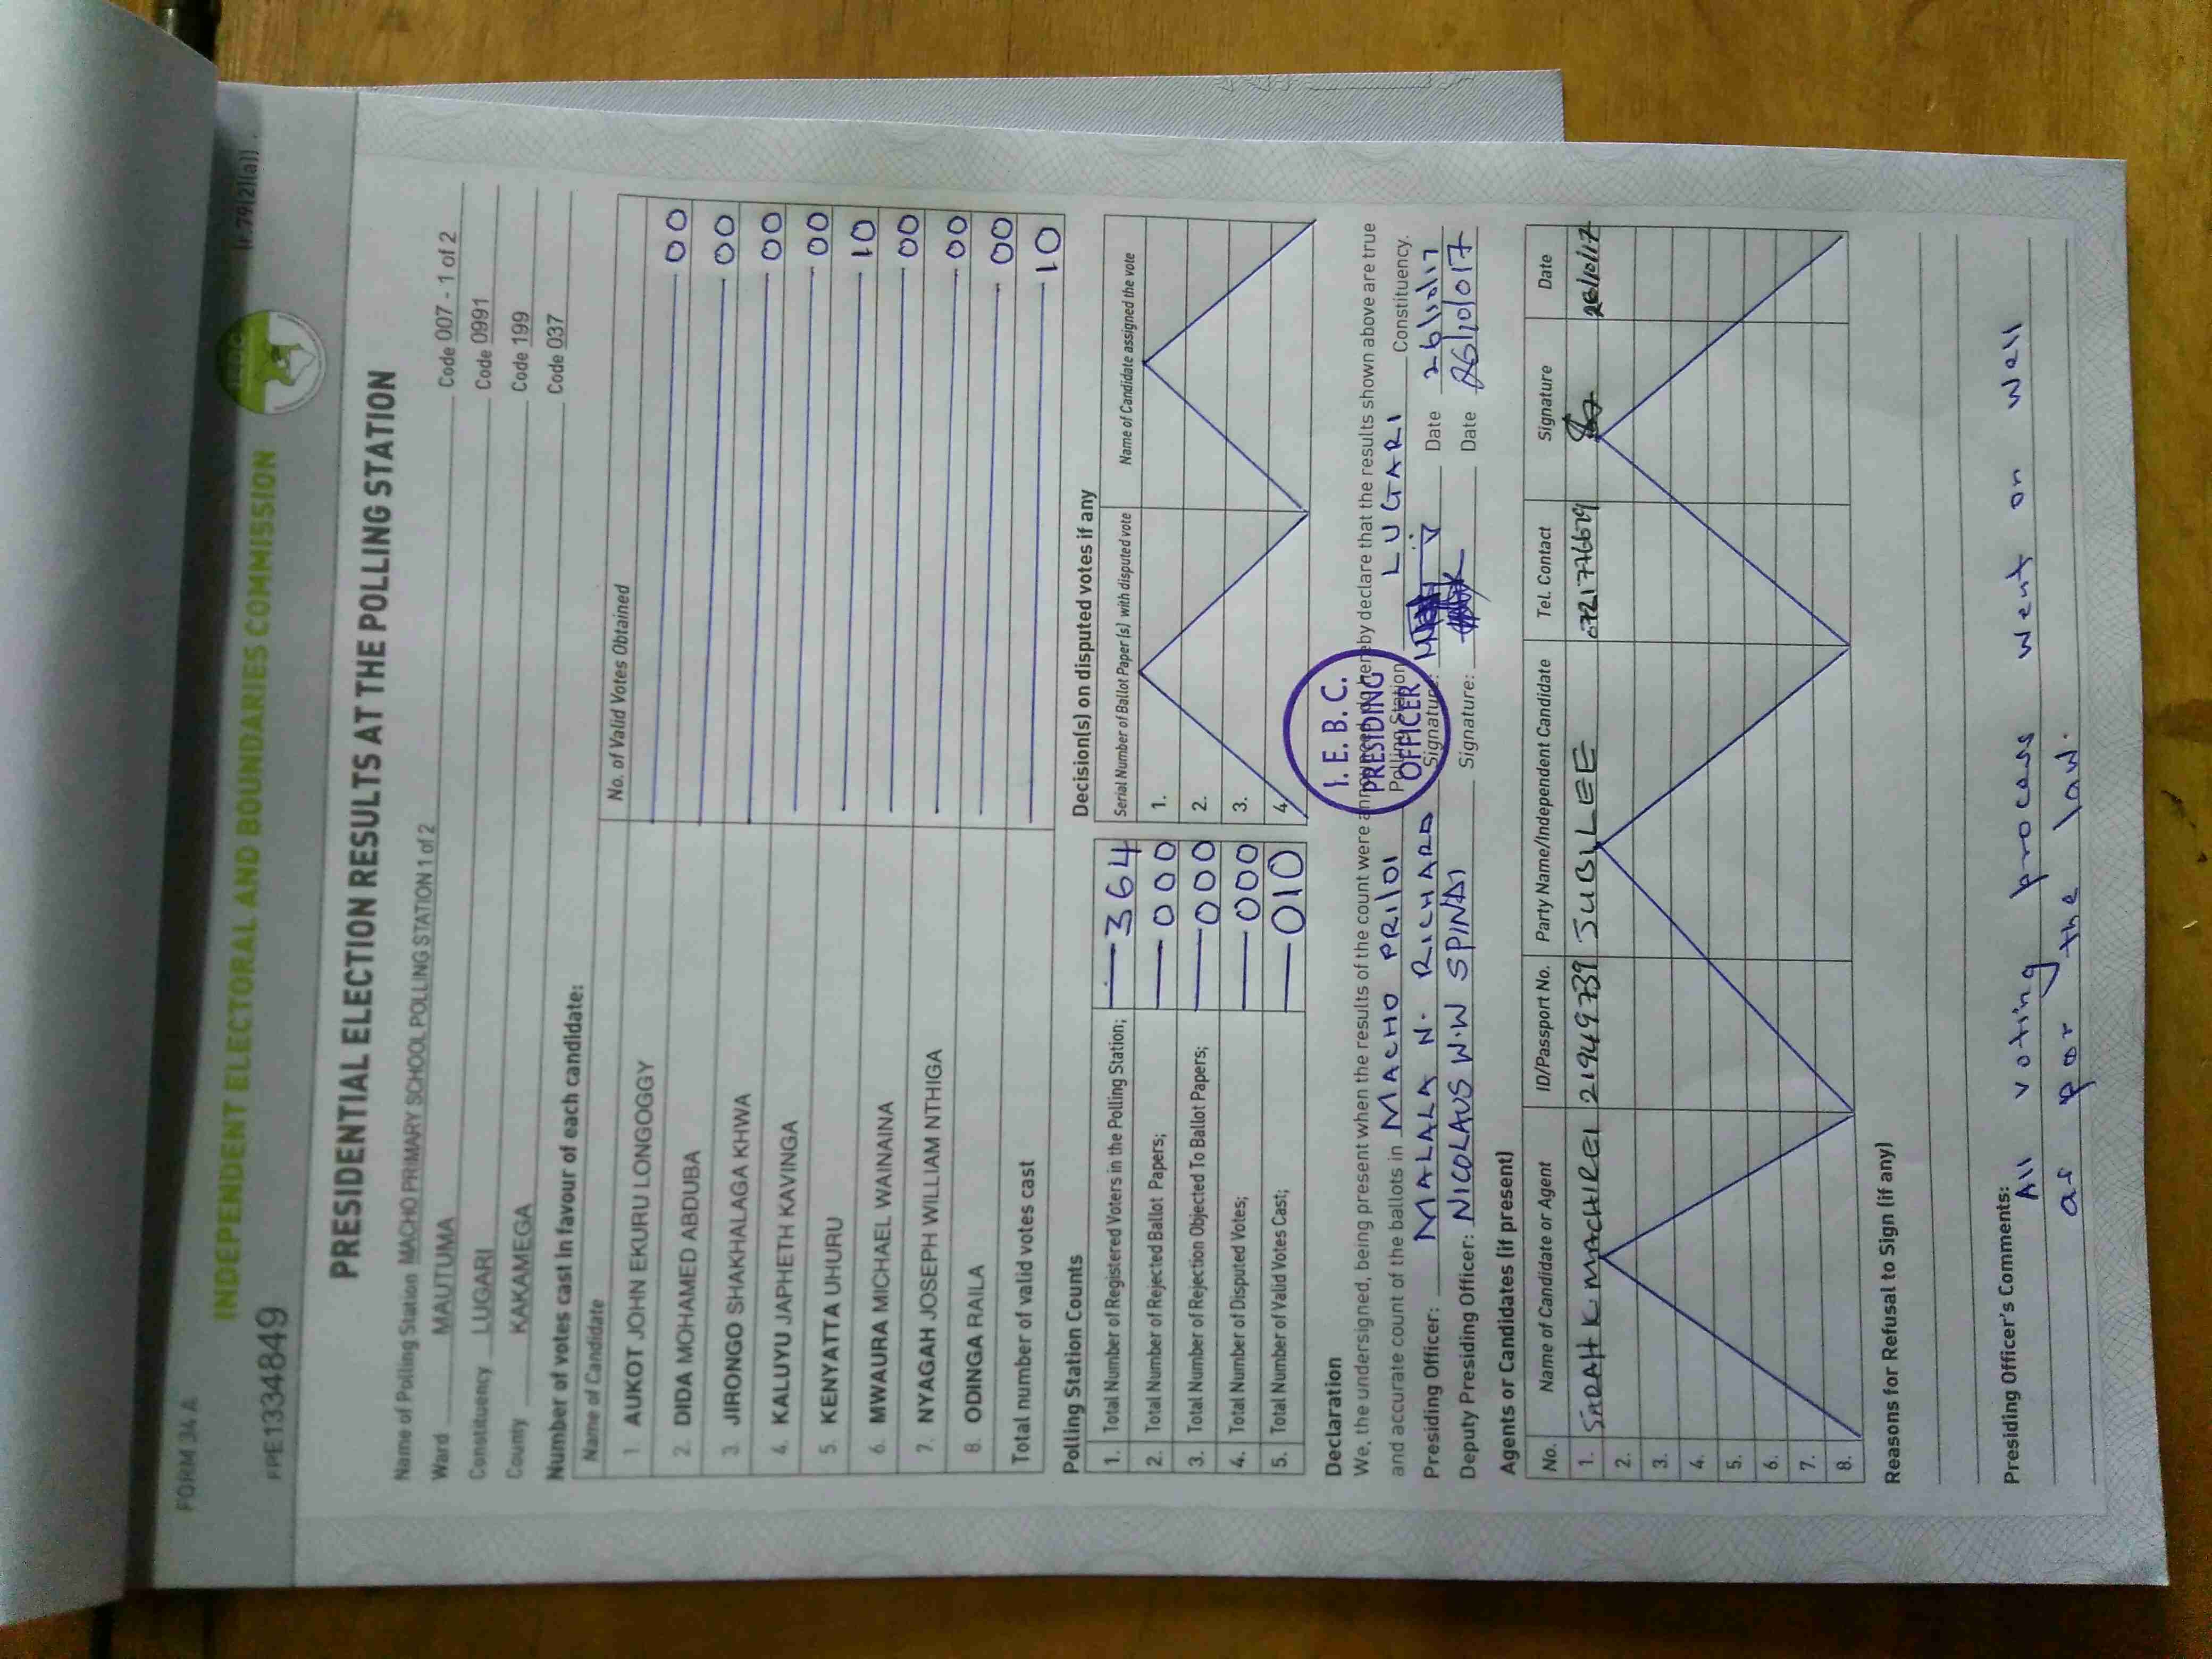 FORM 34 A
INDEPENDENT ELECTORAL AND BOUNDARIES COMMISSION
(r.79(2)(a))
PRESIDENTIAL ELECTION RESULTS AT THE POLLING STATION
Name of Polling Station MACHO PRIMARY SCHOOL POLLING STATION 1 of 2 Code 007 - 1 of 2
Ward MAUTUMA Code 0991
Constituency LUGARI Code 199
County KAKAMEGA Code 037
Number of votes cast in favour of each candidate:
Name of Candidate No. of Valid Votes Obtained
1. AUKOT JOHN EKURU LONGOGGY 00
2. DIDA MOHAMED ABDUBA 00
3. JIRONGO SHAKHALAGA KHWA 00
4. KALUYU JAPHETH KAVINGA 00
5. KENYATTA UHURU 10
6. MWAURA MICHAEL WAINAINA 00
7. NYAGAH JOSEPH WILLIAM NTHIGA 00
8. ODINGA RAILA 00
Total number of valid votes cast 10
Polling Station Counts
1. Total Number of Registered Voters in the Polling Station; 364
2. Total Number of Rejected Ballot Papers; 000
3. Total Number of Rejection Objected To Ballot Papers; 000
4. Total Number of Disputed Votes; 000
5. Total Number of Valid Votes Cast; 010
Decision(s) on disputed votes if any
Serial Number of Ballot Paper (s) with disputed vote Name of Candidate assigned the vote
1.
2.
3.
4.
Declaration
We, the undersigned, being present when the results of the count were announced, do hereby declare that the results shown above are true
and accurate count of the ballots in MACHO PRI/01 Polling Station LUGARI Constituency.
I. E. B. C.
PRESIDING
OFFICER
Presiding Officer: MALALA N. RICHARD Signature: Date 26/10/17
Deputy Presiding Officer: NICOLAUS W.W SPINDI Signature: Date 26/10/017
Agents or Candidates (if present)
No. Name of Candidate or Agent ID/Passport No. Party Name/Independent Candidate Tel. Contact Signature Date
1. SARAH K MACHIREI 21949739 JUBILEE 26/10/17
2.
3.
4.
5.
6.
7.
8.
Reasons for Refusal to Sign (if any)
Presiding Officer's Comments:
All voting process went on well
as per the law.